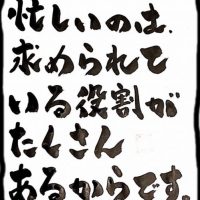 忙しいのは、
求められて
いる役割が
たくさん
あるからです。